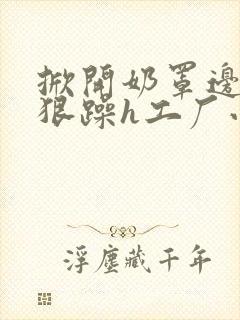 掀開奶罩邊
狠躁h工厂
浮塵藏千年